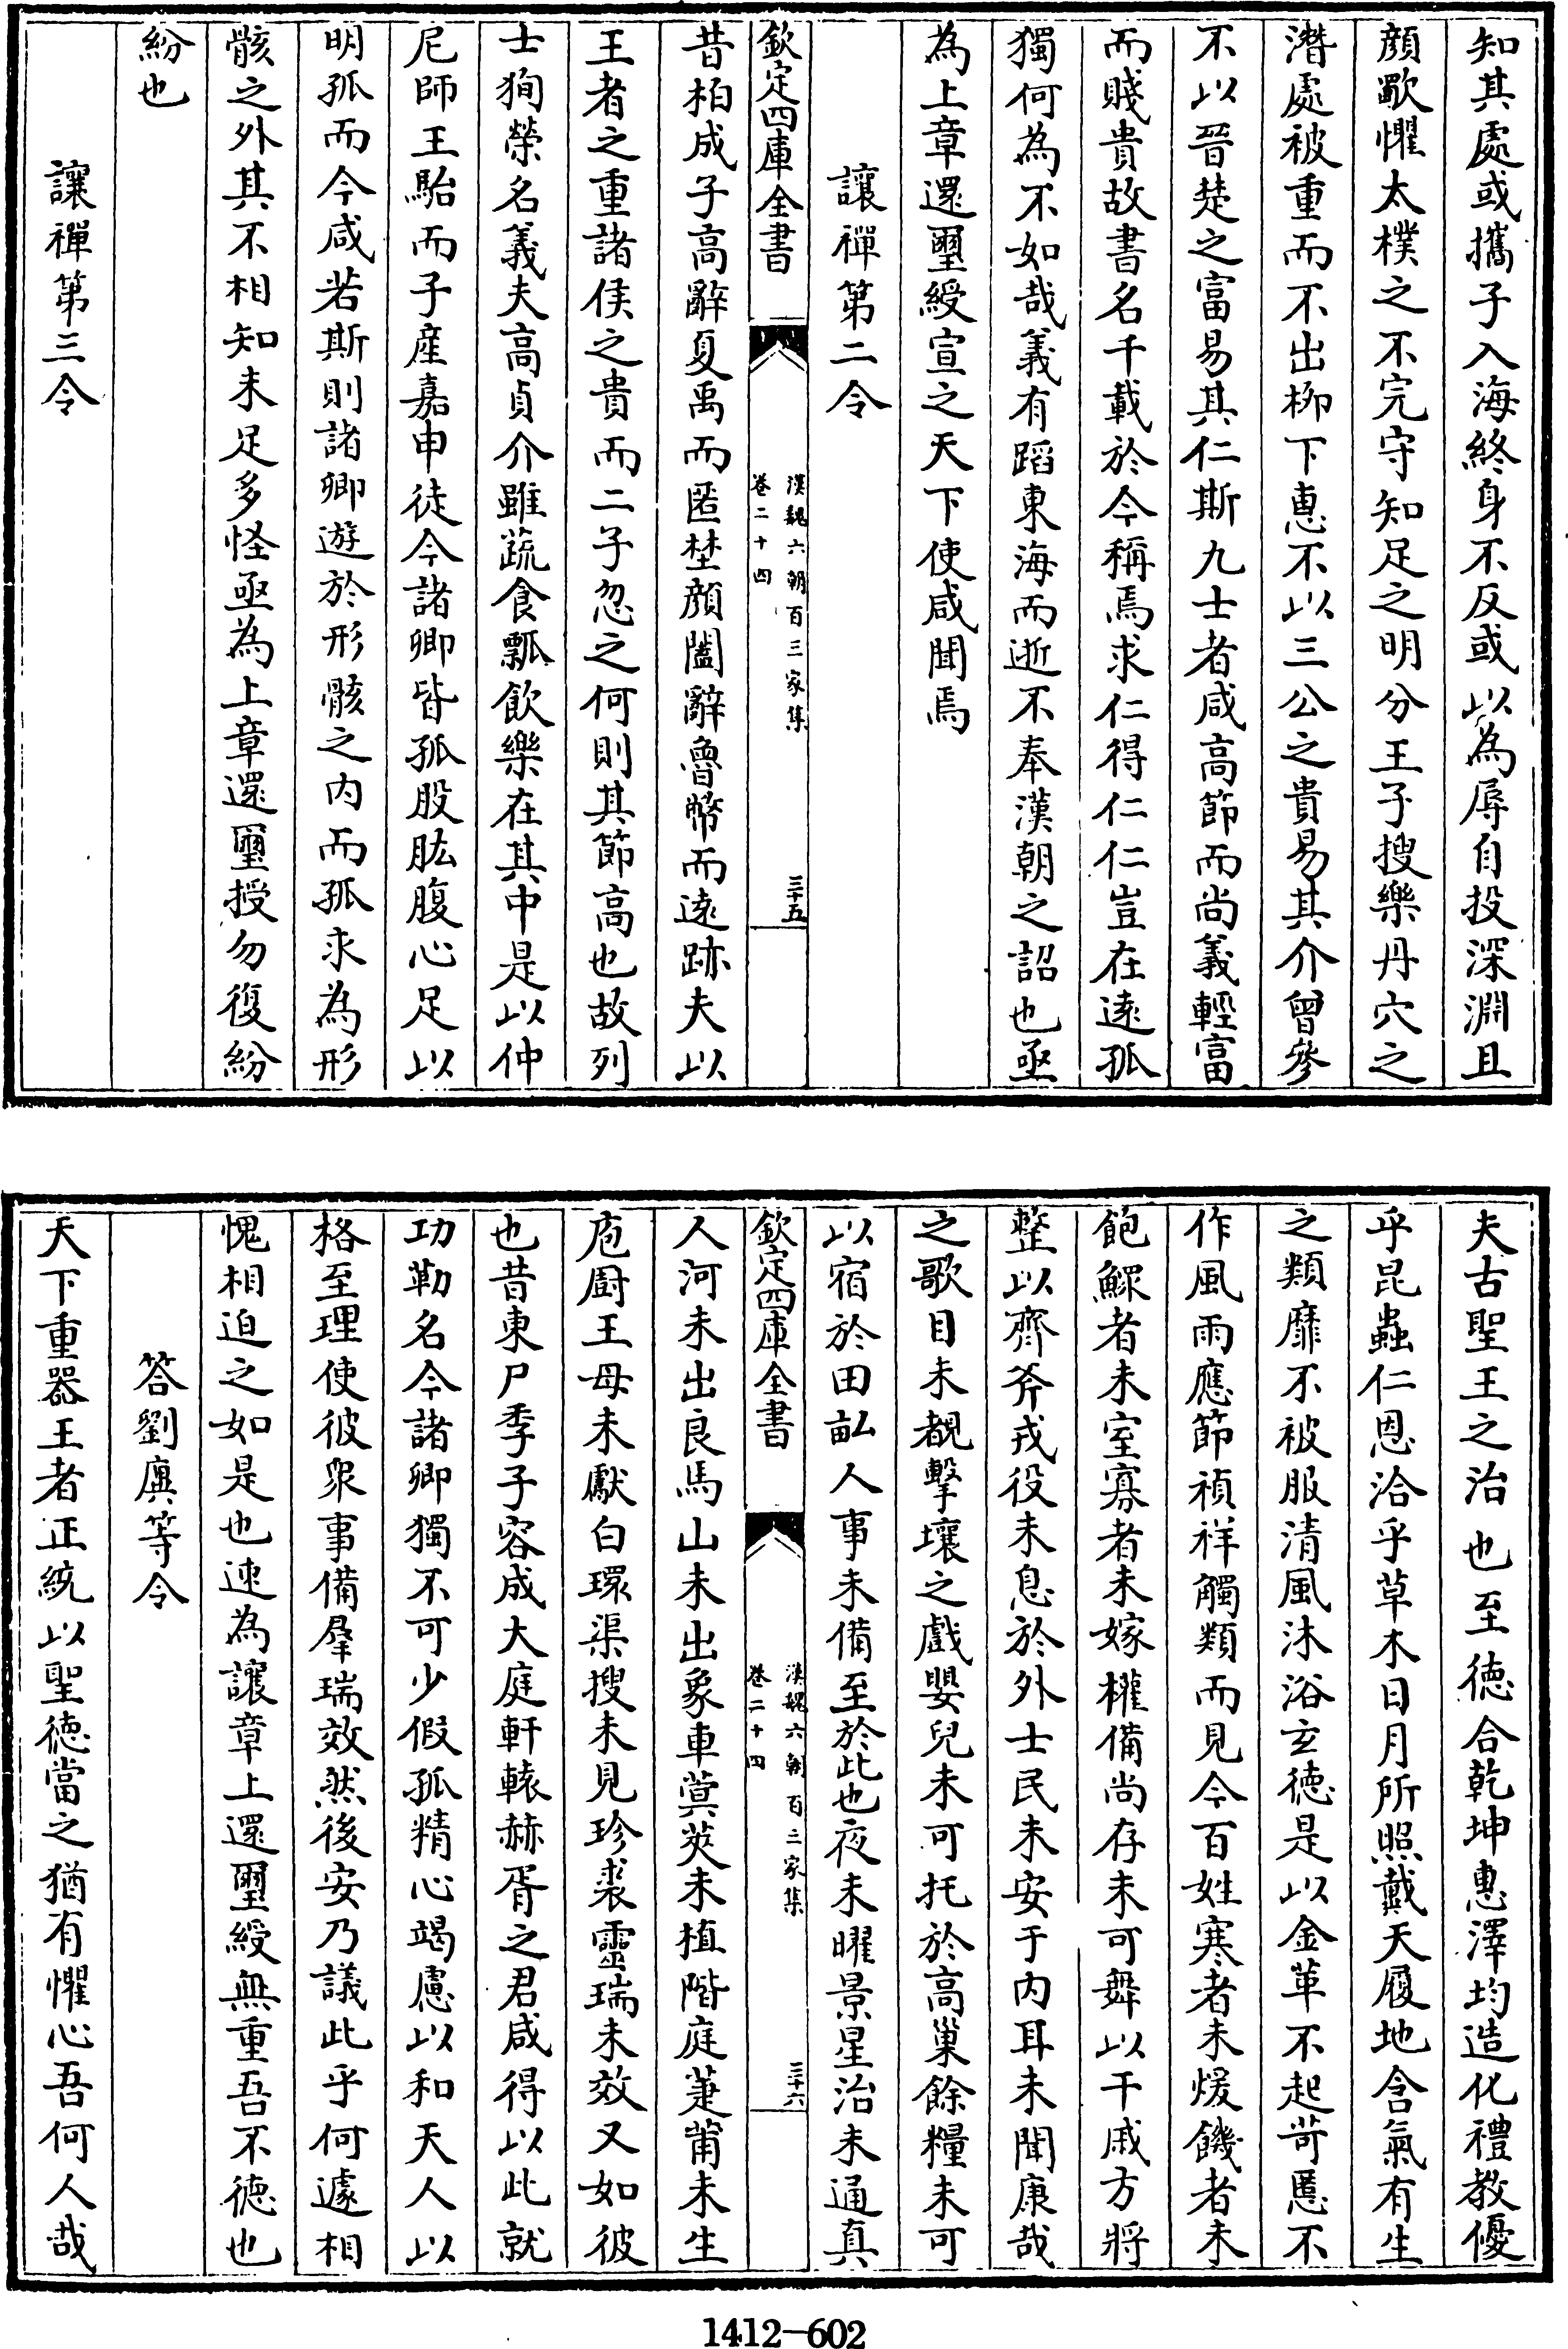 知其處或攜子入海終身不反或以為辱自投深淵且
顔歜懼太樸之不完守知足之明分王子搜樂丹穴之
潛處被重而不出柳下惠不以三公之貴易其介曾參
不以晉楚之富易其仁斯九士者咸高節而尚義輕富
而賤貴故書名千載於今稱焉求仁得仁仁豈在遠孤
獨何為不如哉義有蹈東海而逝不奉漢朝之詔也亟
為上章還璽綬宣之天下使咸聞焉
讓禪第二令
欽定四庫全書
漢魏六朝百三家集
卷二十四
三十五
昔柏成子高辭夏禹而匿埜顔闔辭魯幣而遠跡夫以
王者之重諸侯之貴而二子忽之何則其節高也故列
士狥榮名義夫高貞介雖蔬食瓢飲樂在其中是以仲
尼師王駘而子產嘉申徒今諸卿皆孤股肱腹心足以
明孤而今咸若斯則諸卿遊於形骸之内而孤求為形
骸之外其不相知未足多怪亟為上章還璽授勿復紛
紛也
讓禪第三令
夫古聖王之治也至徳合乾坤惠澤均造化禮教優
乎昆蟲仁恩洽乎草木日月所照戴天履地含氣有生
之類靡不被服清風沐浴玄徳是以金革不起苛慝不
作風雨應節禎祥觸類而見今百姓寒者未煖饑者未
飽鰥者未室寡者未嫁權備尚存未可舞以干戚方將
整以齊斧戎役未息於外士民未安于内耳未聞康哉
之歌目未覩擊壤之戲嬰兒未可托於高巢餘糧未可
以宿於田畝人事未備至於此也夜未曜景星治未通真
欽定四庫全書
漢魏六朝百三家集
卷二十四
三十六
人河未出良馬山未出象車蓂莢未植階庭萐莆未生
庖廚王母未獻白環渠搜未見珍裘靈瑞未效又如彼
也昔東戶季子容成大庭軒轅赫胥之君咸得以此就
功勒名今諸卿獨不可少假孤精心竭慮以和天人以
格至理使彼衆事備羣瑞效然後安乃議此乎何遽相
愧相迫之如是也速為讓章上還璽綬無重吾不徳也
答劉廙等令
天下重器王者正統以聖徳當之猶有懼心吾何人哉
1412-602